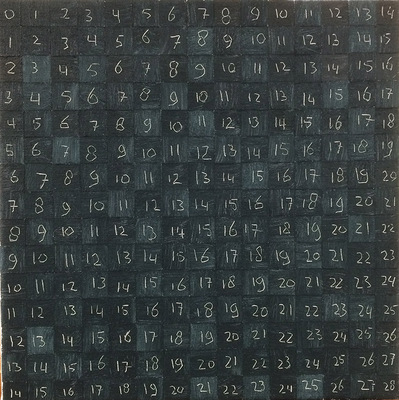 0 1 2 3 4 5 6 7 8 9 10 11 12 13 14
1 2 3 4 5 6 7 8 9 10 11 12 13 14 15
2 3 4 5 6 7 8 9 10 11 12 13 14 15 16
3 4 5 6 7 8 9 10 11 12 13 14 15 16 17
4 5 6 7 8 9 10 11 12 13 14 15 16 17 18
5 6 7 8 9 10 11 12 13 14 15 16 17 18 19
6 7 8 9 10 11 12 13 14 15 16 17 18 19 20
7 8 9 10 11 12 13 14 15 16 17 18 19 20 21
8 9 10 11 12 13 14 15 16 17 18 19 20 21 22
9 10 11 12 13 14 15 16 17 18 19 20 21 22 23
10 11 12 13 14 15 16 17 18 19 20 21 22 23 24
11 12 13 14 15 16 17 18 19 20 21 22 23 24 25
12 13 14 15 16 17 18 19 20 21 22 23 24 25 26
13 14 15 16 17 18 19 20 21 22 23 24 25 26 27
14 15 16 17 18 19 20 21 22 23 24 25 26 27 28